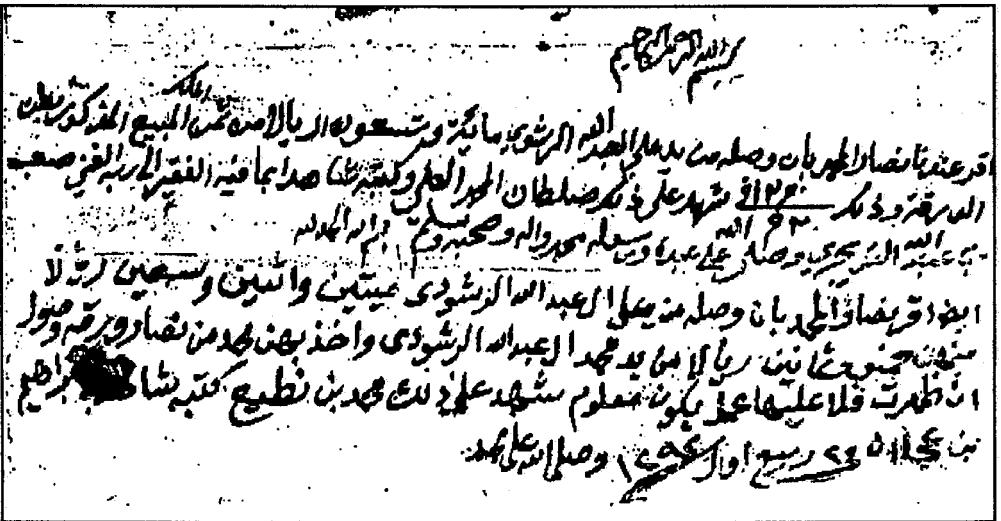 بسم الله الرحمن الرحيم
اقر عندنا نصار المهر بان وصله من يد علي العبد الله الرشودي ماية وتسعون اريال من ثمن المبيع الملك المذكور بطن
الورقة وذلك في شهد على ذلك صلطان المهر العلي وكتبه شاهدا بما فيه الفقير الى ربه الغني صعب
بن عبد الله التويجري وصلى الله على عبده ورسوله محمد واله وصحبه وسلم بسم الله الحمد لله
ايضا اقر نصار المحمد بان وصله من علي ال عبد الله الرشودي ميتين واثنين وسبعين ريالا
منهن خمس وثمانين ريال من يد محمد ال عبد الله الرشودي واخذ بهن محمد من نصار ورقه وصول
ان ظهرت فلا عليها عمل يكون معلوم شهد على ذلك محمد بن نطيع كتبه شاهد ابراهيم
بن ربيع اول ١٢٩٤ وصلى الله على محمد